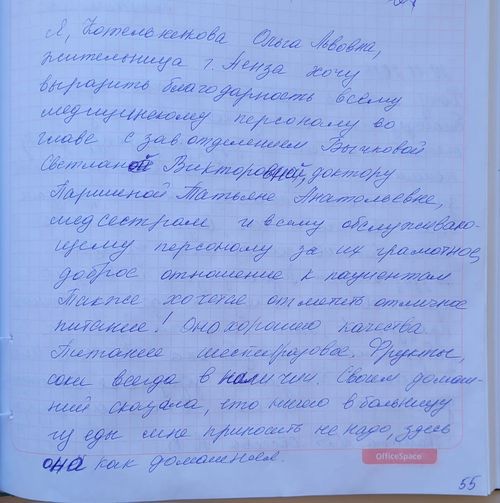 Я, Котельженкова Ольга Львовна,
жительница г. Пенза хочу
выразить благодарность всему
медицинскому персоналу во
главе с зав. отделением Бычковой
Светланой Викторовной, доктору
Паршиной Татьяне Анатольевне,
медсестрам и всему обслуживаю-
щему персоналу за их грамотное,
доброе отношение к пациентам
Также хочется отметить отличное
питание! Оно хорошего качества
Питание шестиразовое. Фрукты,
соки всегда в наличии. Своим домаш-
ний сказала, что ничего в больницу
из еды мне приносить не надо, здесь
она как домашняя.
OfficeSpace
55